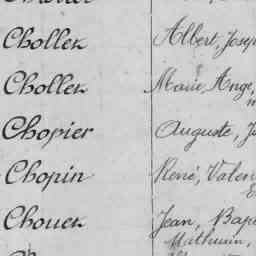 Chollet Albert, Josep
Chollet Marie, Ange,
Chopier Auguste, J
Chopin René, Valen
Chouet Jean, Bap
Mathurin,